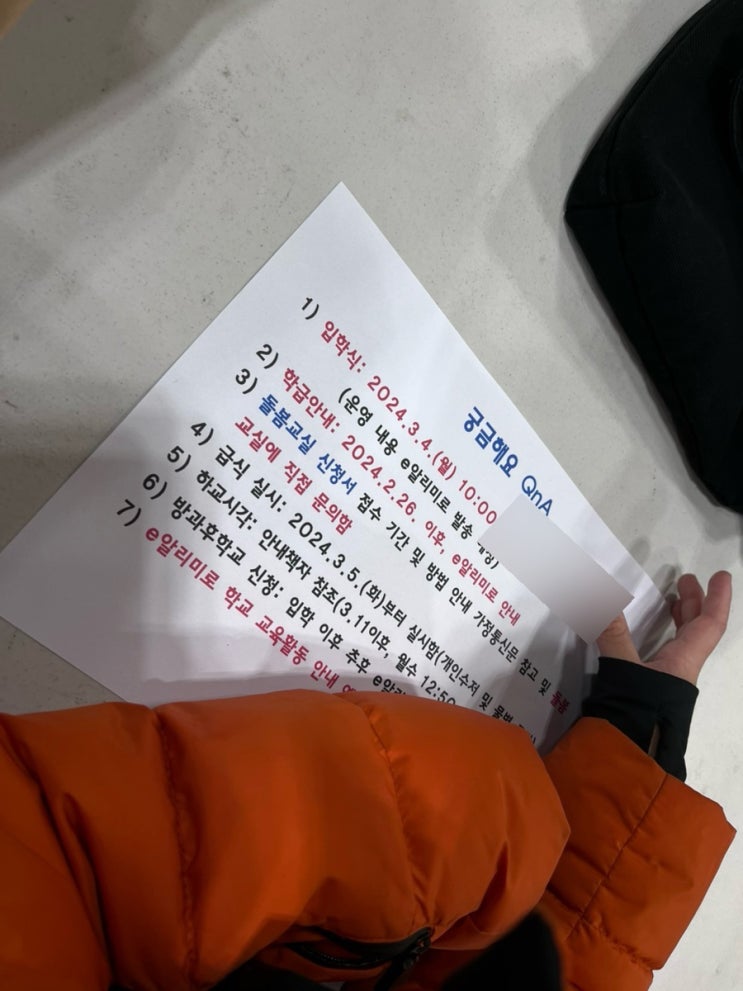 궁금해요 QnA
1) 입학식: 2024.3.4.(월) 10:00
(운영 내용 e알리미로 발송
2) 학급안내: 2024.2.26. 이후, e알리미로 안내
3) 돌봄교실 신청서 접수 기간 및 방법 안내 가정통신문 참고 및 돌봄
교실에 직접 문의함
4) 급식 실시: 2024.3.5.(화)부터 실시함(개인수저 및 물병
5) 하교시각: 안내책자 참조(3.11이후, 월수 12:50
6) 방과후학교 신청: 입학 이후 추후
7) e알리미로 학교 교육활동 안내